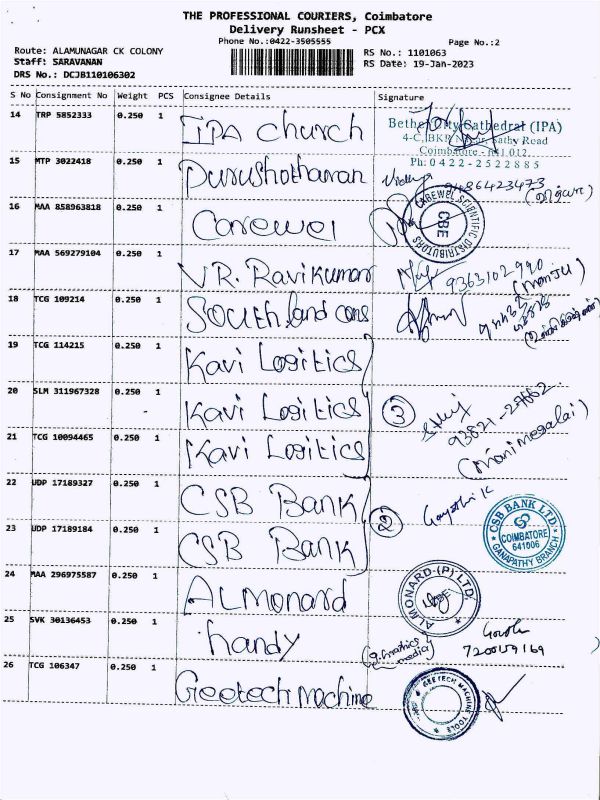 THE PROFESSIONAL COURIERS, Coimbatore
Delivery Runsheet - PCX
Phone No.:0422-3505555
Page No.:2
Route: ALAMUNAGAR CK COLONY
RS No.: 1101063
Staff: SARAVANAN
RS Date: 19-Jan-2023
DRS No.: DCJB110106302
S No Consignment No Weight PCS Consignee Details Signature
14 TRP 5852333 0.250 1 IPA church
Cathedral (IPA)
Sathy Road
Coimbatore - 641 012
Ph: 0422-2522885
15 MTP 3022418 0.250 1 Purushothaman
16 MAA 858963818 0.250 1 Carewel
CAREWEL SCIENTIFIC DISTRIBUTORS
CBE
17 MAA 569279104 0.250 1 V.R. Ravikumar 9363102990
(Manju)
18 TCG 109214 0.250 1 South land cons
19 TCG 114215 0.250 1 Kavi Logitics
20 SLM 311967328 0.250 1 Kavi Logitics 3
21 TCG 10094465 0.250 1 Kavi Logitics
(Manimegalai)
22 UDP 17189327 0.250 1 CSB Bank 2 Gayathri K
23 UDP 17189184 0.250 1 CSB Bank
CSB BANK LTD.
COIMBATORE
641006
GANAPATHY BRANCH
24 MAA 296975587 0.250 1 ALmonard
ALMONARD (P) LTD.
25 SVK 30136453 0.250 1 handy
media)
26 TCG 106347 0.250 1 Geetech machine
GEETECH MACHINE TOOLS